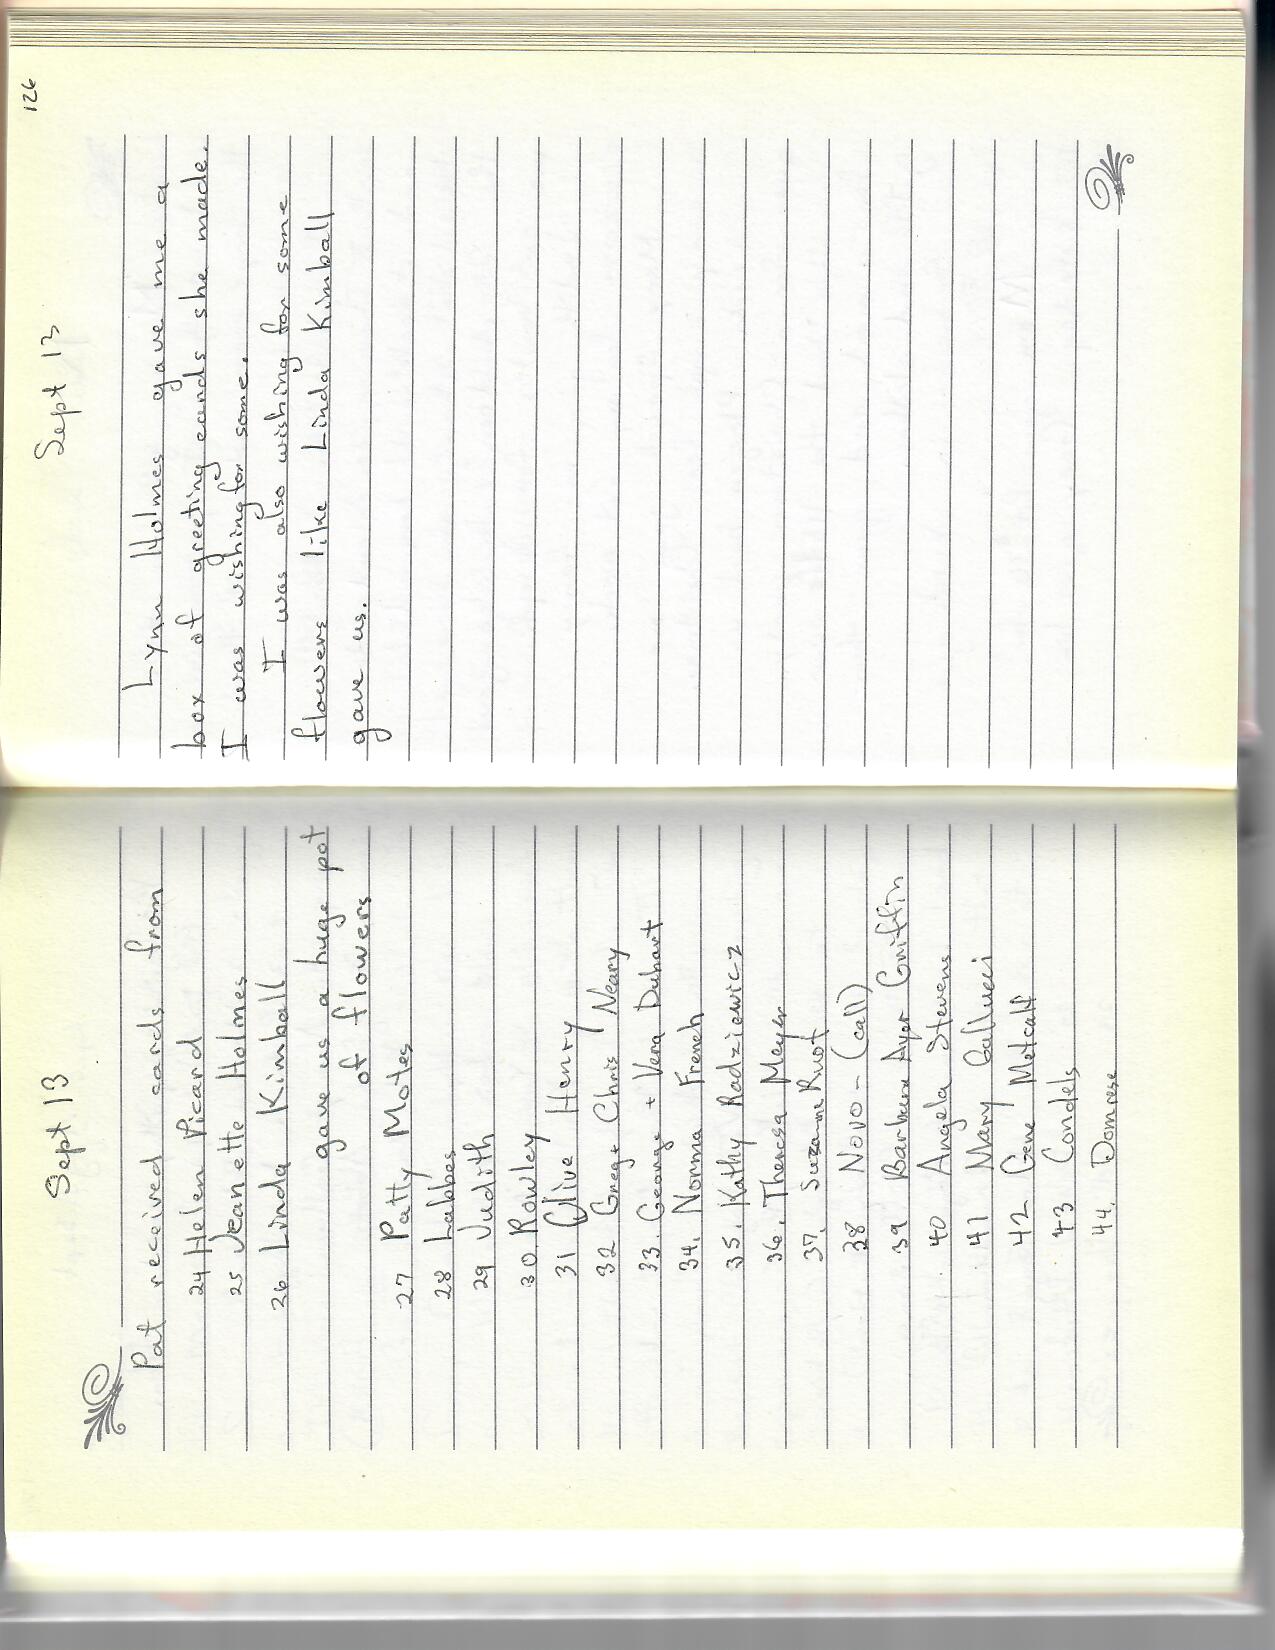 Sept 13
Pat received cards from
24 Helen Picard
25 Jeanette Holmes
26 Linda Kimball
gave us a huge pot
of flowers
27 Patty Motes
28 Labbes
29 Judith
30. Rowley
31 Olive Henry
32 Greg + Chris Neary
33. George + Vera Duhart
34. Norma French
35. Kathy Radziewicz
36. Theresa Meyer
37. Suzanne Ruot
38 Novo - (call)
39 Barbara Ayer Griffin
40 Angela Stevens
41 Mary Gallucci
42 Gene Metcalf
43 Condels
44. Domrese
126
Sept 13
Lynn Holmes gave me a
box of greeting cards she made.
I was wishing for some.
I was also wishing for some
flowers like Linda Kimball
gave us.